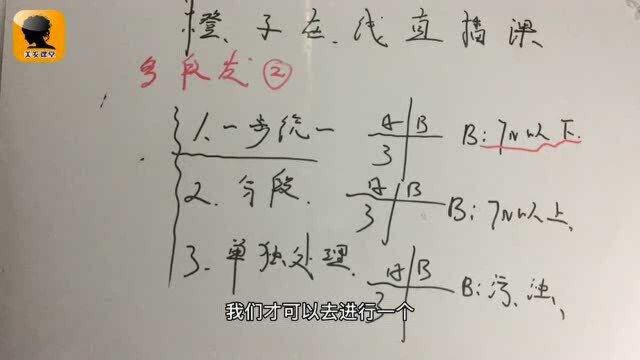 橙子在线直播课
多段发②
1.一步统一 A B 3 B:7N以下.
2.分段. A B 3 B:7N以上,
3.单独处理. A B 3 B:污、浊、
我们才可以去进行一个